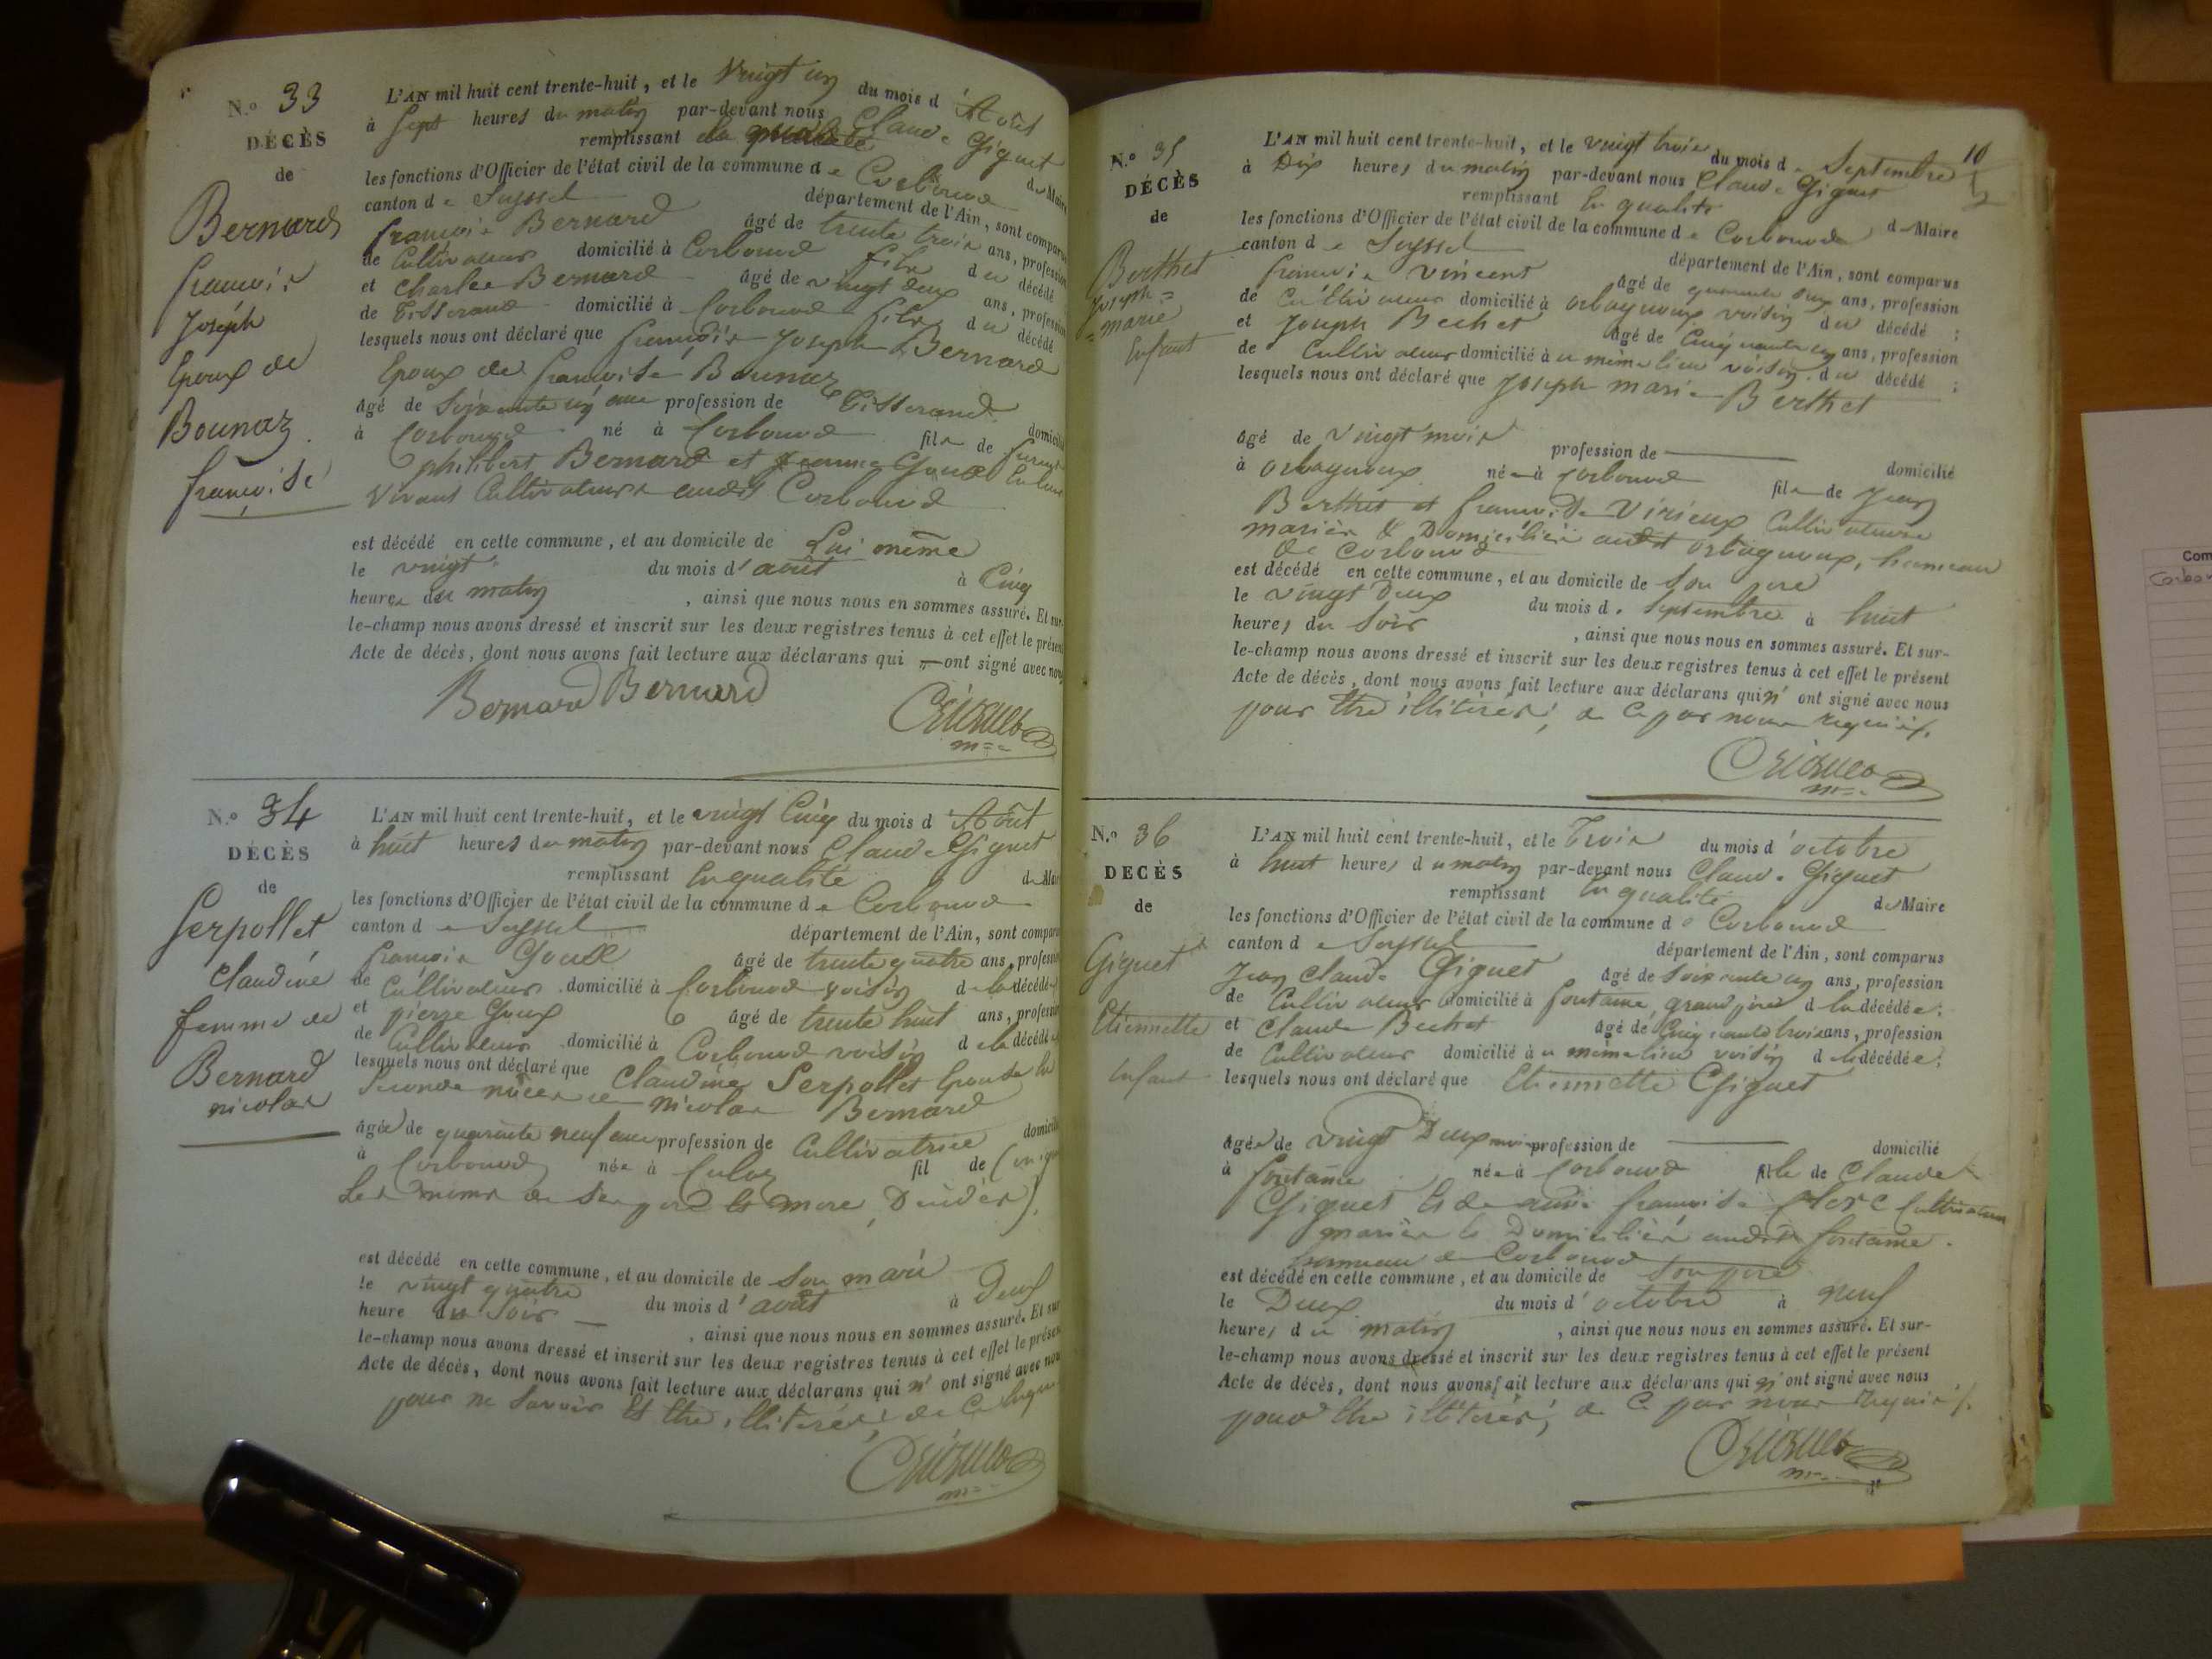 N.º 33
DÉCÈS
de
Bernard
françois
Joseph
Epoux de
Bounaz
françoise
L'AN mil huit cent trente-huit, et le vingt un du mois d'Août
à sept heures du matin par-devant nous Claude Giguet
remplissant la qualité de Maire
les fonctions d'Officier de l'état civil de la commune de Corbonod
canton de Seyssel département de l'Ain, sont comparus
françois Bernard âgé de trente trois ans, profession
de Cultivateur domicilié à Corbonod fils du décédé
et Charles Bernard âgé de vingt deux ans, profession
de Tisserand domicilié à Corbonod fils du décédé
lesquels nous ont déclaré que françois Joseph Bernard
Epoux de françoise Bounaz
âgé de soixante un ans profession de Tisserand domicilié
à Corbonod né à Corbonod fils de furent
philibert Bernard et Jeanne Goux
vivant Cultivateurs audit Corbonod
est décédé en cette commune, et au domicile de Lui même
le vingt du mois d'août à Cinq
heures du matin, ainsi que nous nous en sommes assuré. Et sur-
le-champ nous avons dressé et inscrit sur les deux registres tenus à cet effet le présent
Acte de décès, dont nous avons fait lecture aux déclarans qui ont signé avec nous
Bernard Bernard
N.º 34
DÉCÈS
de
Serpollet
Claudine
femme de
Bernard
nicolas
L'AN mil huit cent trente-huit, et le vingt Cinq du mois d'Août
à huit heures du matin par-devant nous Claude Giguet
remplissant En qualité de Maire
les fonctions d'Officier de l'état civil de la commune de Corbonod
canton de Seyssel département de l'Ain, sont comparus
françois Goux âgé de trente quatre ans, profession
de Cultivateur domicilié à Corbonod voisin de la décédée
et pierre Goux âgé de trente huit ans, profession
de Cultivateur domicilié à Corbonod voisin de la décédée
lesquels nous ont déclaré que Claudine Serpollet Epouse En
seconde noces de nicolas Bernard
âgée de quarante neuf ans profession de Cultivatrice domicilié
à Corbonod née à Culoz fil de
Les noms de ses père et mere Décédés)
est décédé en cette commune, et au domicile de son mari
le vingt quatre du mois d'août à
heure du soir, ainsi que nous nous en sommes assuré. Et sur
le-champ nous avons dressé et inscrit sur les deux registres tenus à cet effet le présent
Acte de décès, dont nous avons fait lecture aux déclarans qui n'ont signé avec nous
pour ne savoir Et être illitérés, de Ce Requis
N.º 35
DÉCÈS
de
Berthet
Joseph=
=marie
Enfant
10
L'AN mil huit cent trente-huit, et le vingt trois du mois de Septembre
à Dix heures du matin par-devant nous Claude Giguet
remplissant En qualité de Maire
les fonctions d'Officier de l'état civil de la commune de Corbonod
canton de Seyssel département de l'Ain, sont comparus
françois vincent âgé de quarante deux ans, profession
de Cultivateur domicilié à orbagnoux voisin du décédé ;
et Joseph Bechet âgé de Cinquante un ans, profession
de Cultivateur domicilié à u même lieu voisin du décédé ;
lesquels nous ont déclaré que Joseph marie Berthet
âgé de vingt mois profession de domicilié
à orbagnoux née à Corbonod fils de Jean
Berthet et françoise Virieux Cultivateurs
mariés & Domiciliés audit orbagnoux, hameau
de Corbonod
est décédé en cette commune, et au domicile de son père
le vingt Deux du mois de Septembre à huit
heures du soir, ainsi que nous nous en sommes assuré. Et sur-
le-champ nous avons dressé et inscrit sur les deux registres tenus à cet effet le présent
Acte de décès, dont nous avons fait lecture aux déclarans qui n'ont signé avec nous
pour être illitérés, de Ce par nous requis.
N.º 36
DÉCÈS
de
Giguet
Etiennette
Enfant
L'AN mil huit cent trente-huit, et le Trois du mois d'octobre
à huit heures du matin par-devant nous Claude Giguet
remplissant En qualité de Maire
les fonctions d'Officier de l'état civil de la commune de Corbonod
canton de Seyssel département de l'Ain, sont comparus
Jean Claude Giguet âgé de soixante un ans, profession
de Cultivateur domicilié à fontaine grand père de la décédée ;
et Claude Bechet âgé de Cinquante trois ans, profession
de Cultivateur domicilié à u même lieu voisin de la décédée ;
lesquels nous ont déclaré que Etiennette Giguet
âgée de vingt Deux mois profession de domicilié
à fontaine née à Corbonod fille de Claude
Giguet Et de françoise Clerc Cultivateurs
mariés Et Domiciliés audit fontaine.
hameau de Corbonod
est décédé en cette commune, et au domicile de son père
le Deux du mois d'octobre à neuf
heures du matin, ainsi que nous nous en sommes assuré. Et sur-
le-champ nous avons dressé et inscrit sur les deux registres tenus à cet effet le présent
Acte de décès, dont nous avons fait lecture aux déclarans qui n'ont signé avec nous
pour être illitérés, de Ce par nous Requis.
Com